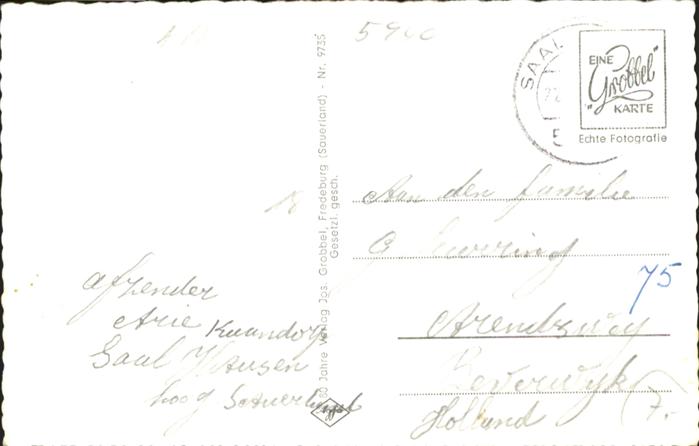 5900
SAAL
EINE
"Grobbel"
KARTE
Echte Fotografie
60 Jahre Verlag Jos. Grobbel, Fredeburg (Sauerland) - Nr. 9735
Gesetzl. gesch.
Aan den familie
G
75
Beverwijk
Holland
7.-
afzender
Arie
Saal Hausen
hoog Sauerland